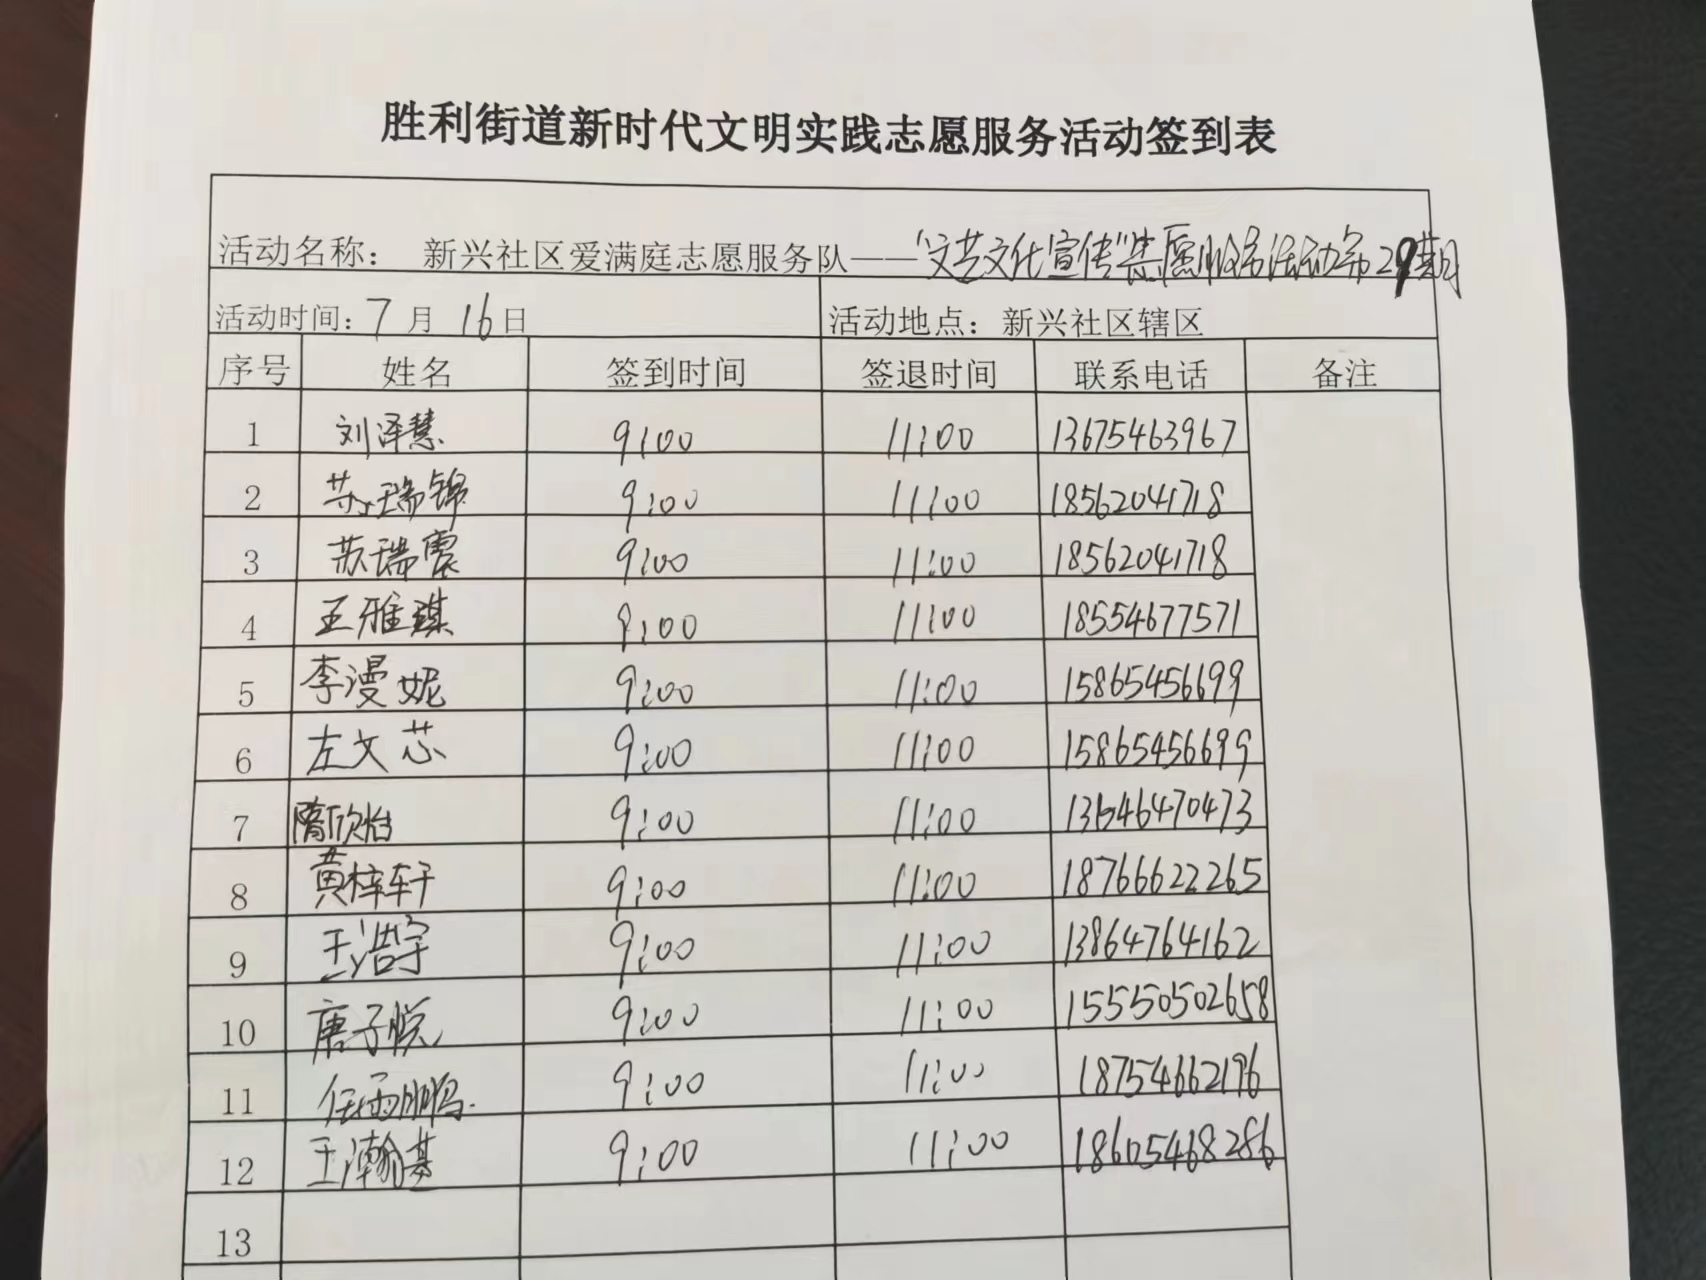 胜利街道新时代文明实践志愿服务活动签到表
活动名称： 新兴社区爱满庭志愿服务队——“文艺文化宣传”志愿服务活动第29期
活动时间：7月16日 活动地点：新兴社区辖区
序号 姓名 签到时间 签退时间 联系电话 备注
1 刘泽慧 9:00 11:00 13675463967
2 苏瑞锦 9:00 11:00 18562041718
3 苏瑞震 9:00 11:00 18562041718
4 王雅琪 9:00 11:00 18554677571
5 李漫妮 9:00 11:00 15865456699
6 左文芯 9:00 11:00 15865456699
7 隋欣怡 9:00 11:00 13646470473
8 黄梓轩 9:00 11:00 18766622265
9 王浩宇 9:00 11:00 13864764162
10 唐子悦 9:00 11:00 15550502658
11 任雨鹏 9:00 11:00 18754662196
12 王瀚基 9:00 11:00 18605468286
13